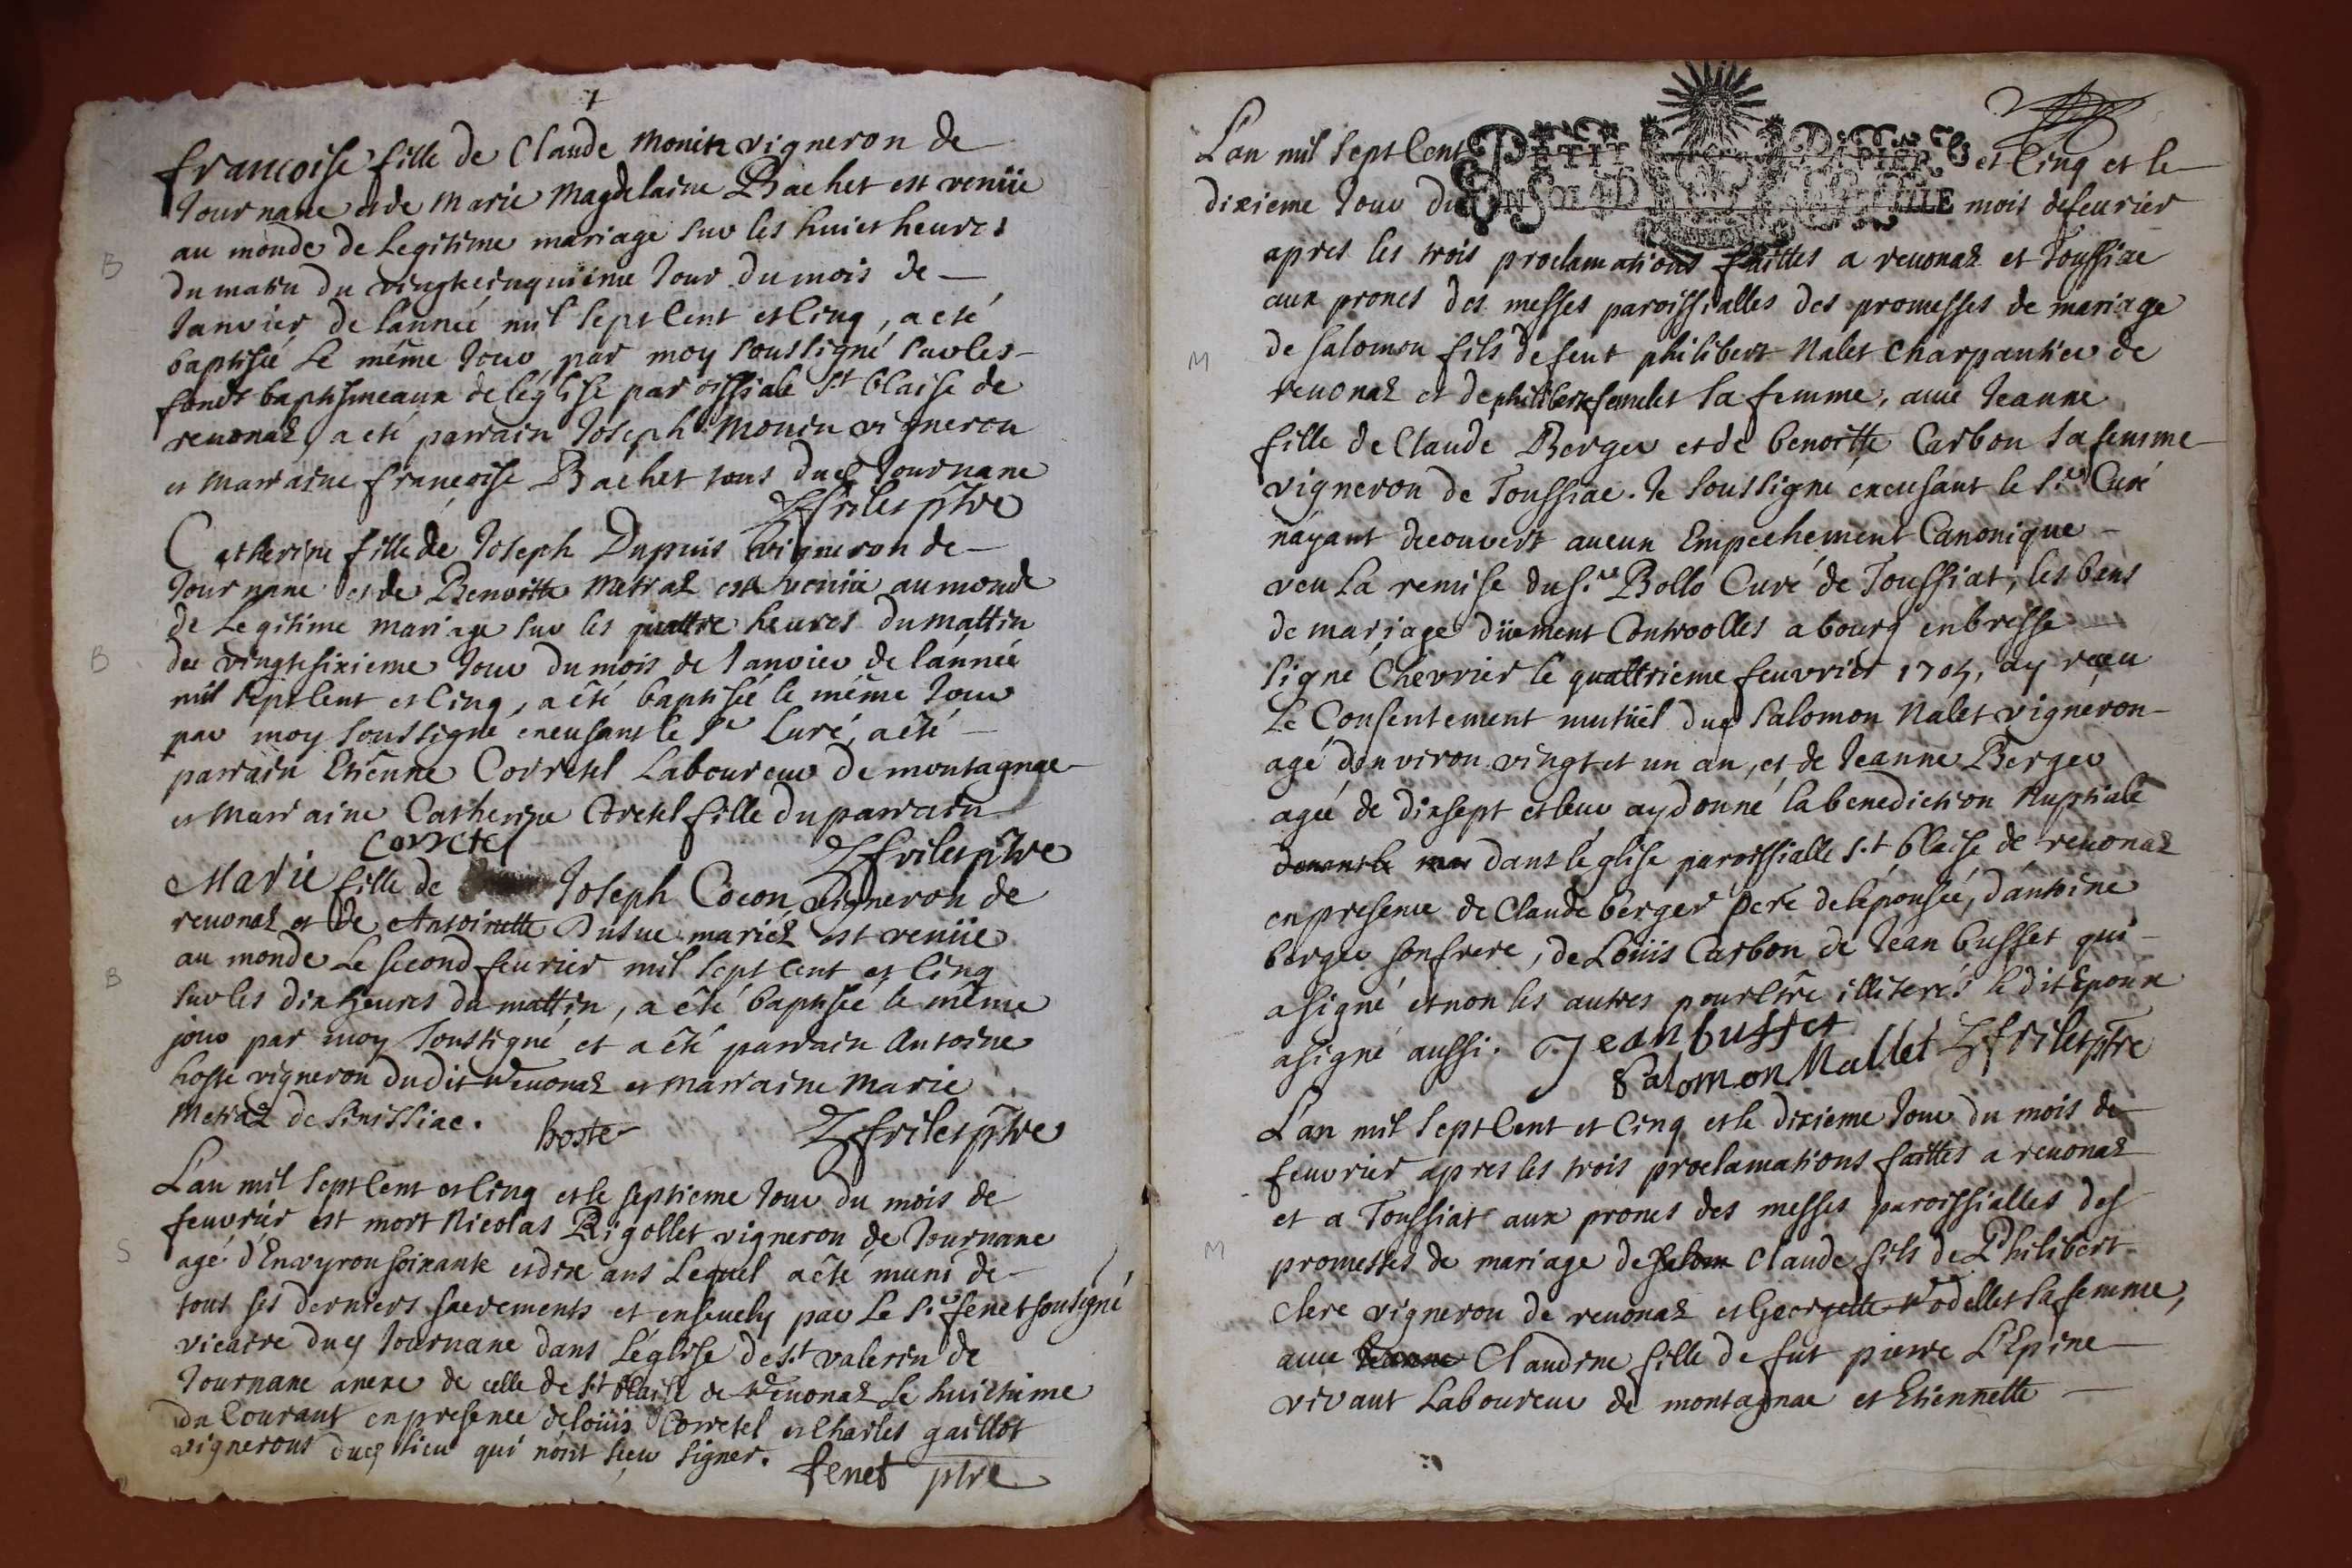 7
francoise fille de Claude Monin vigneron de
Journane et de Marie Magdelaine Bachet est venüe
au monde de Legitime mariage sur les huict heures
B
du matin du vingtcinquieme Jour du mois de
Janvier de lannée mil sept Cent et Cinq, a eté
baptisée le même Jour par moy soussigné sur les
fonds baptismeaux de léglise paroissiale St blaise de
reuonas, a eté parrain Joseph Monin vigneron
et Marraine francoise Bachet tous dud Journane
frilet ptre
Catherine fille de Joseph Dupuis vigneron de
Journane et de Benoitte Metras est venüe au monde
de Legitime mariage sur les quattre heures du mattin
B
du vingtesixieme Jour du mois de Janvier de lánnée
mil sept Cent et Cinq, a été baptisée le même Jour
par moy soussigné excusant le Sr Curé, a été
parrain Etienne Corretel Laboureur de montagnac
et Marraine Catherine Coretel fille du parrain
Corretel
frilet ptre
Marie fille de Joseph Cocon vigneron de
reuonas et de Antoinette Dusue mariés est venüe
au monde Le second feurier mil sept Cent et Cinq
B
sur les dix heures du mattin, a été baptisée le même
jour par moy soussigné et a été parrain Antoine
hoste vigneron dudit Reuonas et Marraine Marie
Metras de Senissiac.
hoste
frilet ptre
L'an mil sept Cent et Cinq et le septieme Jour du mois de
feuvrier est mort Nicolas Rigollet vigneron de Journane
S
agé d'Envyron soixante et dix ans Lequel a été muni de
tous ses derniers sacrements et ensevely par Le Sr. fenet sousigné
vicaire dud Journane dans L'églisse de St valerin de
Journane anexe de celle de St blaise de Reuonas Le huictiéme
du Courant en presence de loüis Corretel et Charles gaillot
vignerons dud lieu qui nónt sceu signer.
fenet ptre
L'an mil sept Cent et Cinq et le
PETIT PAPIER
dixieme Jour du mois de feurier
apres les trois proclamations faittes a reuonas et Toussiac
aux prones des messes paroissialles des promesses de mariage
M
de salomon fils de feut philibert Nalet Charpantier de
reuonas et de philiberte femelet sa femme, auec Jeanne
fille de Claude Berger et de benoitte Carbon sa femme
vigneron de Toussiac. Je soussigné excusant le Sr. Curé
náyant decouvert aucun Empechement Canonique
veu La remise du Sr. Bollo Curé de Toussiat, les bans
de mariage düement Controolles a bourg en bresse
signé Chevrier le quattrieme feuvrier 1705, ay receu
Le Consentement mutüel dud Salomon Nalet vigneron
agé dénviron vingt et un an, et de Jeanne Berger
agée de dixsept et leur ay donné la benediction Nuptiale
dans léglise paroissialle S.t blaise de reuonas
en presence de Claude berger pere de lépousée, dántoine
berger son frere, de Loüis Carbon de Jean busset qui
a signé et non les autres pour étre illiterés le dit Epoux
a signé aussi.
Jean busset
Salomon Nallet
frilet ptre
L'an mil sept Cent et Cinq et le dixieme Jour du mois de
feuvrier apres les trois proclamations faittes a reuonas
et a Toussiat aux prones des messes paroissialles des
M
promesses de mariage de salom Claude fils de Philibert
Clerc vigneron de reuonas et Georgette Rodellet sa femme,
auec Jeanne Claudine fille de fut pierre L'Epine
vivant Laboureur de montagnac et Etiennette